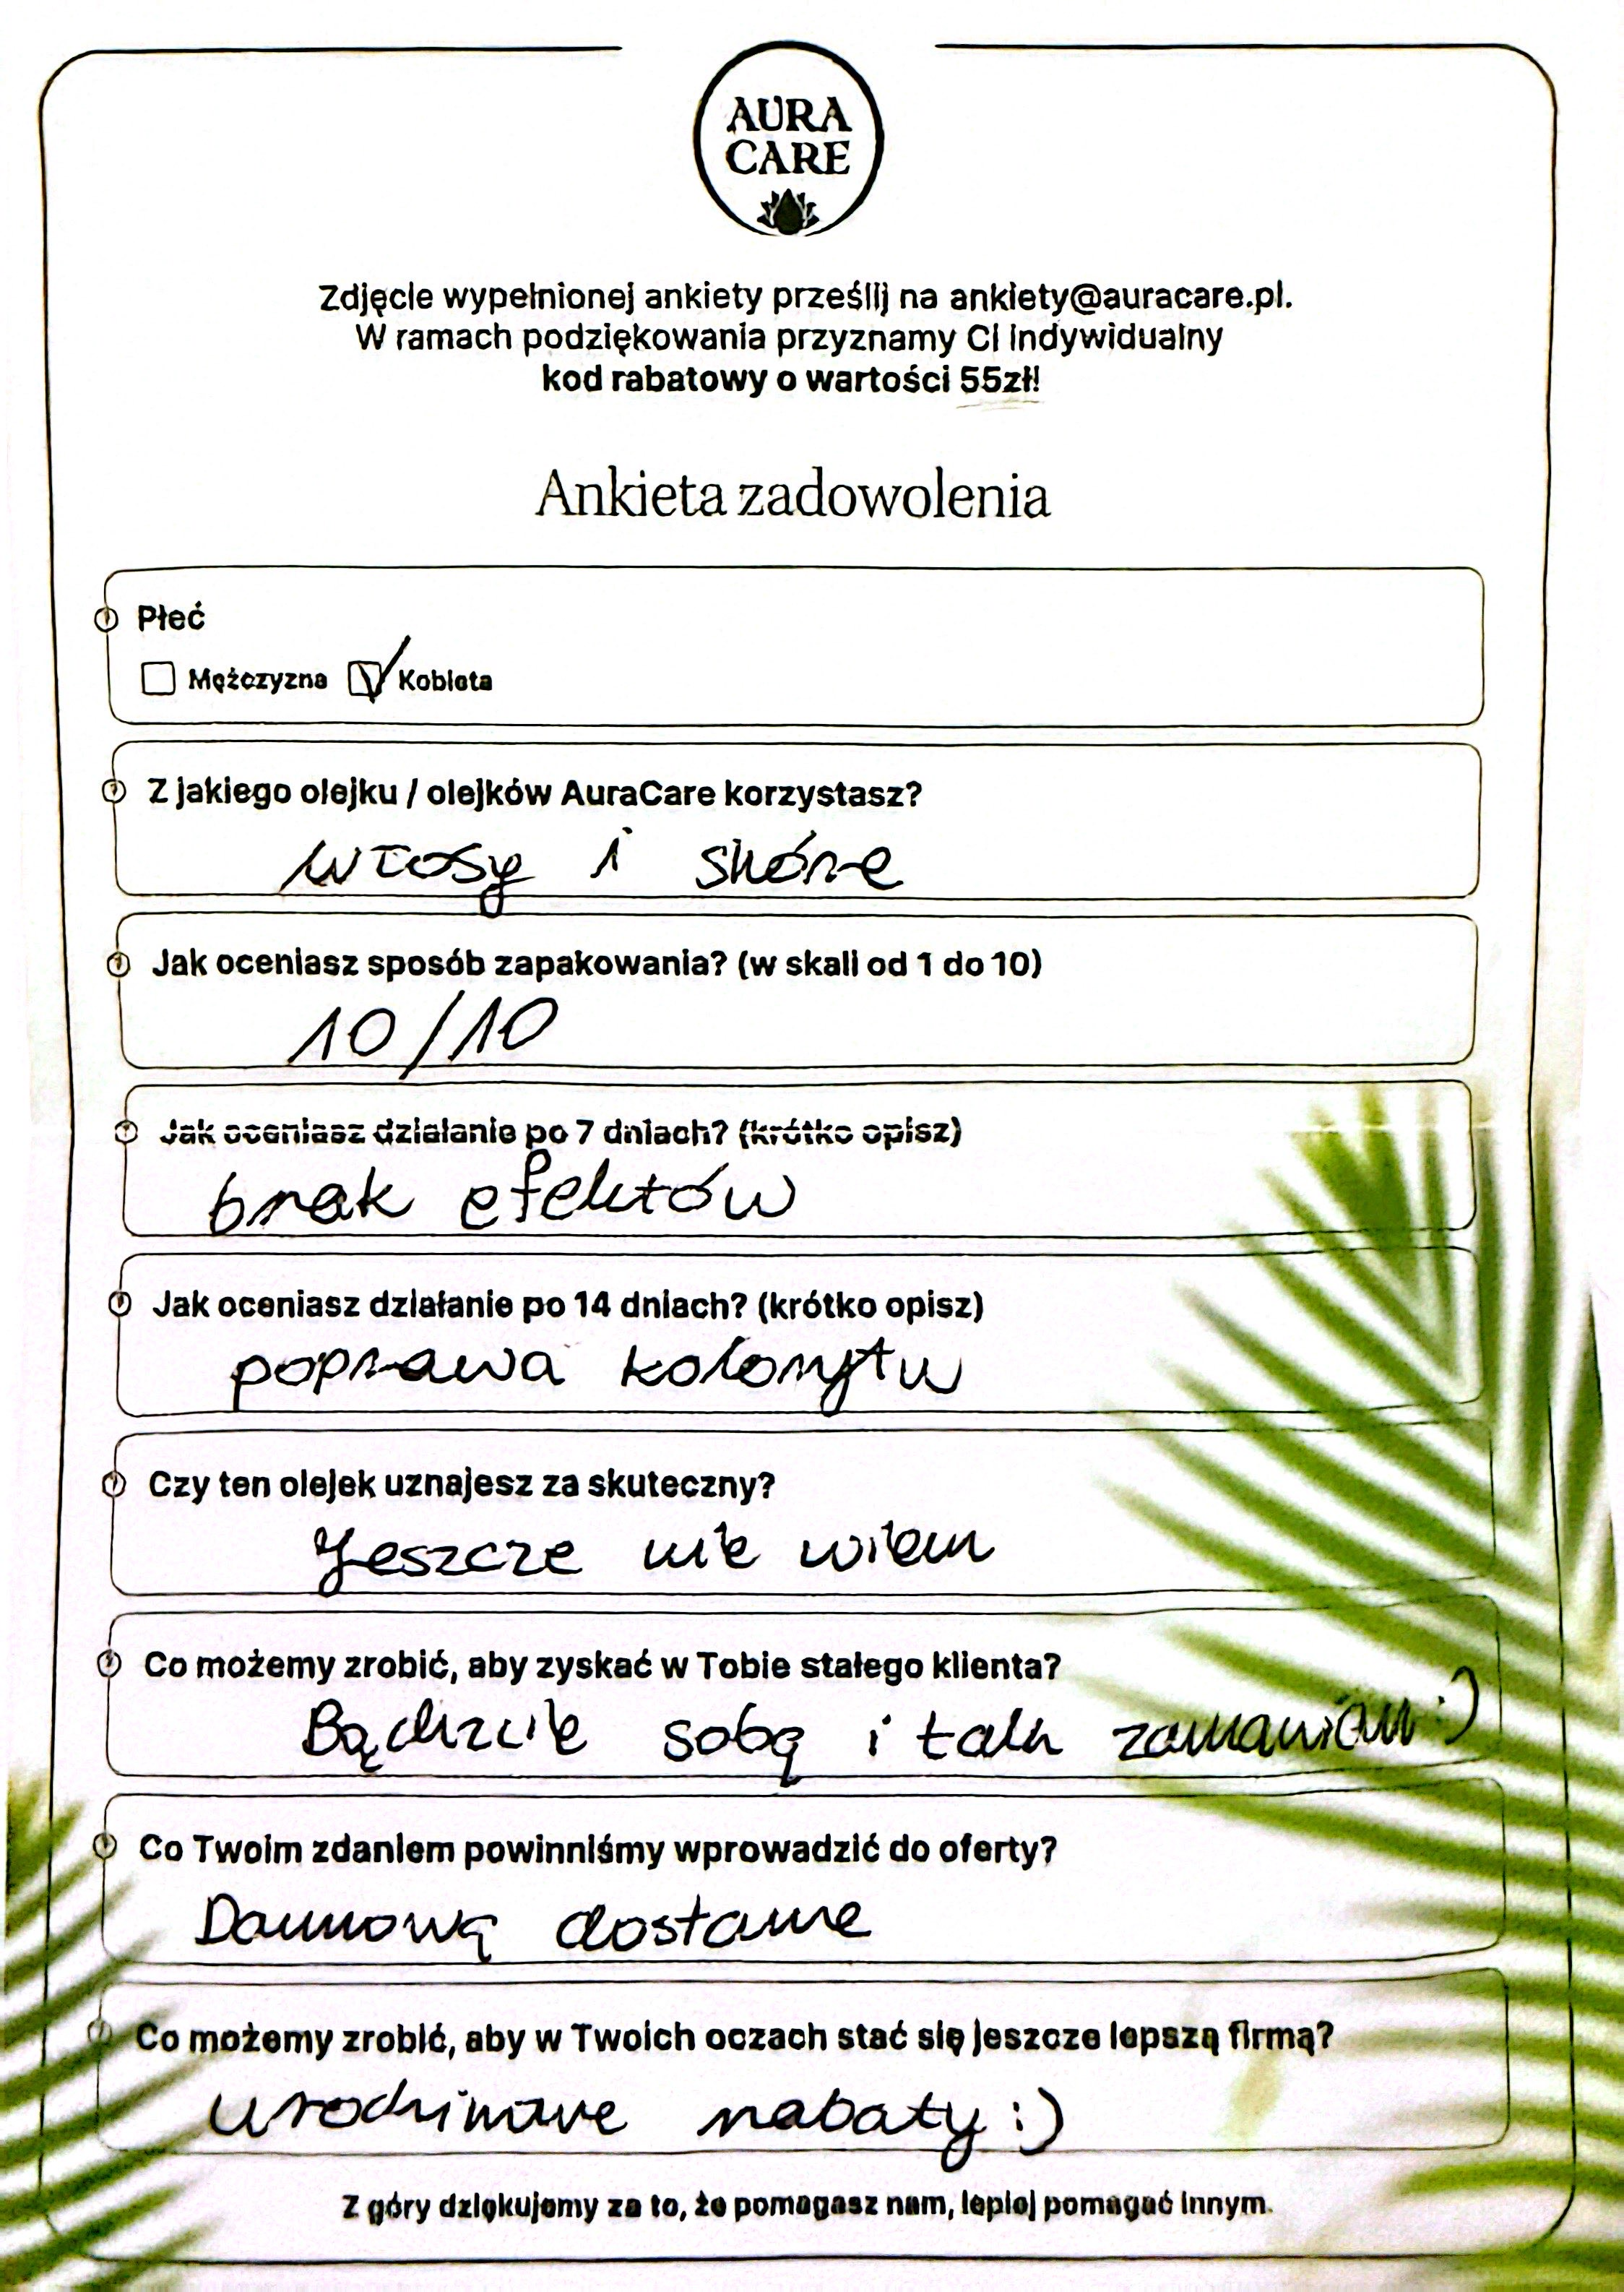 AURA
CARE
Zdjęcie wypełnionej ankiety prześlij na ankiety@auracare.pl.
W ramach podziękowania przyznamy Ci indywidualny
kod rabatowy o wartości 55zł!
Ankieta zadowolenia
Płeć
Mężczyzna Kobieta
Z jakiego olejku / olejków AuraCare korzystasz?
włosy i skórę
Jak oceniasz sposób zapakowania? (w skali od 1 do 10)
10/10
Jak oceniasz działanie po 7 dniach? (krótko opisz)
brak efektów
Jak oceniasz działanie po 14 dniach? (krótko opisz)
poprawa kolorytu
Czy ten olejek uznajesz za skuteczny?
Jeszcze nie wiem
Co możemy zrobić, aby zyskać w Tobie stałego klienta?
Bądźcie sobą i tak zamawiam :)
Co Twoim zdaniem powinniśmy wprowadzić do oferty?
Darmową dostawę
Co możemy zrobić, aby w Twoich oczach stać się jeszcze lepszą firmą?
urodzinowe rabaty :)
Z góry dziękujemy za to, że pomagasz nam, lepiej pomagać innym.